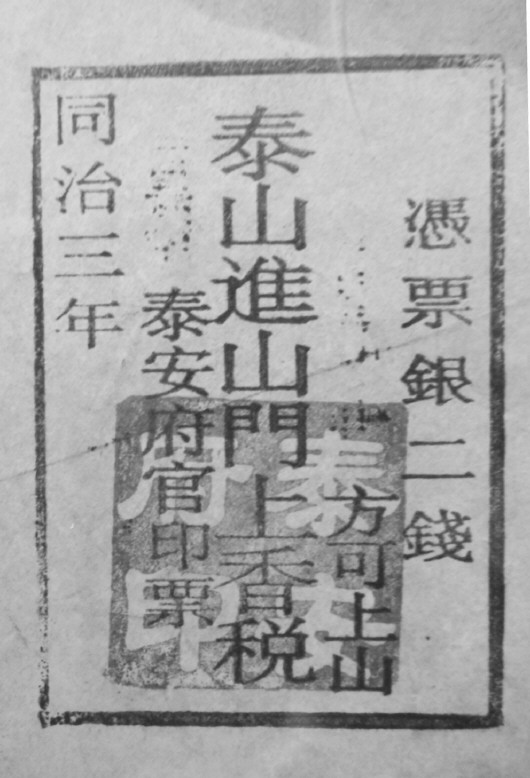 憑票銀二錢
方可上山
泰山進山門上香税
泰安府官印票
同治三年
泰
府印